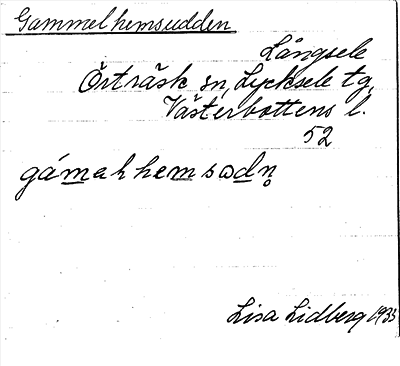 Gammelhemsudden
Långsele
Örträsk sn, Lycksele tg,
Västerbottens l.
52
gámehhemsɷdn̥
Lisa Lidberg 1935